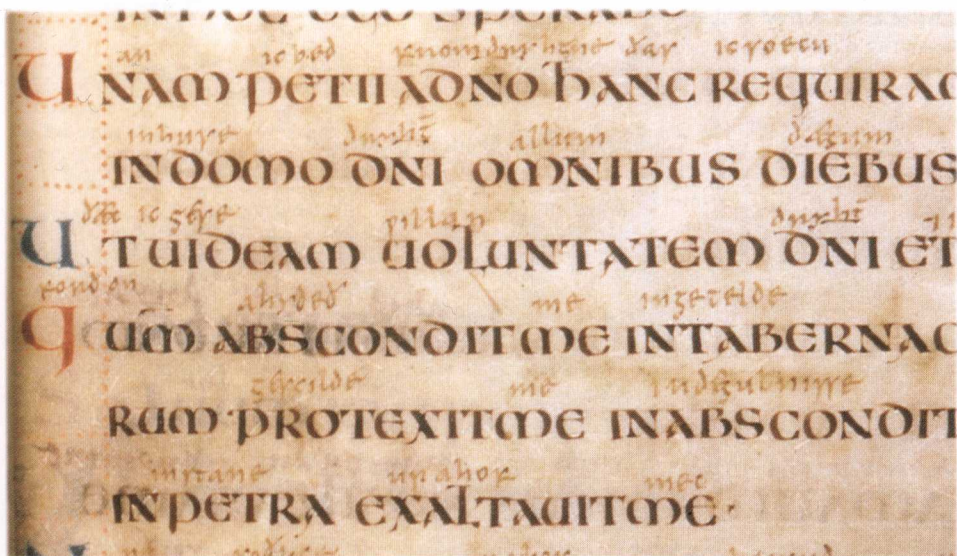 IN HOC EGO SPERABO
an ic bed from dryhtne ðas ic soecu
UNAM PETII A DNO hANC REQUIRA
in huse dryht allum dægum
IN DOMO DNI OMNIBUS DIEBUS
ðæt ic gese willan dryht
UT UIDEAM UOLUNTATEM DNI ET
forðon ahyded me in getelde
QUM ABSCONDIT ME IN TABERNAC
gescilde me in degulnisse
RUM PROTEXIT ME IN ABSCONDIT
in stane up ahof mec
IN PETRA EXALTAUIT ME